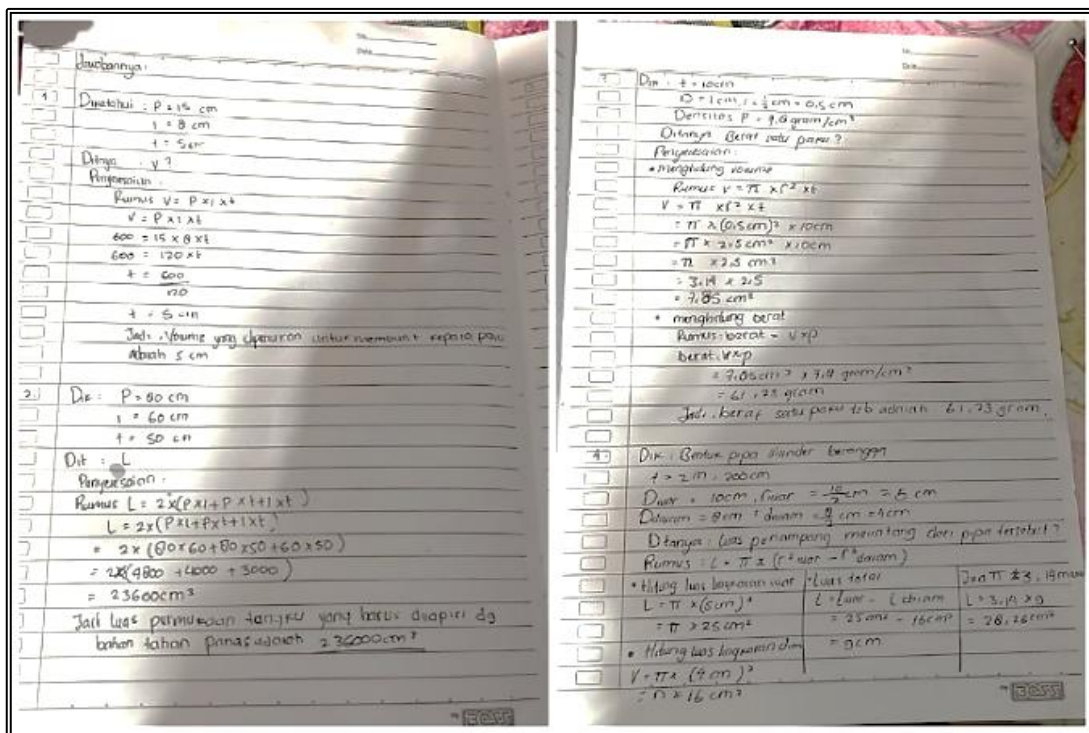 No.
Date
Jawabannya:
1 Diketahui : P = 15 cm
l = 8 cm
t = 5cm
: V?
Penyelesaian
Rumus V = P x l x t
V = P x l x t
600 = 15 x 8 x t
600 = 120 x t
t = 600
120
t = 5 cm
Jadi, Volume yang diperlukan untuk membuat kepala paku
adalah 5 cm
2. Dik : P = 80 cm
l = 60 cm
t = 50 cm
Dit : L
Penyelesaian :
Rumus L = 2x(P x l + P x t + l x t)
L = 2x(P x l + P x t + l x t)
= 2x(80x60+80x50+60x50)
= 2x(4800 + 4000 + 3000)
= 23600cm³
Jadi Luas permukaan yang harus dilapisi dg
bahan tahan panas adalah 236000cm²
BOSS
No.
Date
Dik : t = 10cm
D = 1 cm, r = ½ cm = 0,5 cm
Densitas P = 7,8 gram/cm³
Ditanya Berat satu paku?
Penyelesaian :
• menghitung volume
Rumus V = π x r² x t
V = π x r² x t
= π x (0,5cm)² x 10cm
= π x 2,5 cm² x 10cm
= π x 2,5 cm³
= 3,14 x 2,5
= 7,85 cm³
• menghitung berat
Rumus: berat = V x p
berat: V x p
= 7,85cm³ x 7,8 gram/cm³
= 61,23 gram
Jadi, berat satu paku tsb adalah 61,23 gram
4. Dik : Bentuk pipa silinder berongga
t = 2m = 200cm
Dluar = 10cm, rluar = 10/2 cm = 5 cm
Ddalam = 8cm r dalam = 8/2 cm = 4cm
Ditanya : Luas penampang melintang dari pipa tersebut?
Rumus : L = π x (r² luar - r² dalam)
• Hitung luas lingkaran luar
L = π x (5cm)²
= π x 25cm²
• Hitung luas lingkaran dlm
V = π x (4 cm)²
= π x 16 cm²
• Luas total
L = Luar - L dalam
= 25cm² - 16cm²
= 9cm
π ± 3,14
L = 3,14 x 9
= 28,26cm²
BOSS